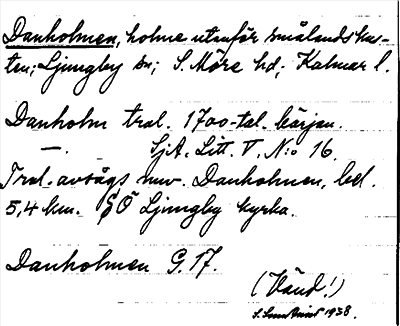 Danholmen, holme utanför smålandskus-
ten; Ljungby sn; S. Möre hd; Kalmar l.
Danholm tral. 1700-tal. början.
—. SjA. Litt. V. N:o 16.
Tral. avsågs nuv. Danholmen, bel.
5,4 km. SÖ Ljungby kyrka.
Danholmen G. 17.
(Vänd!)
1938.